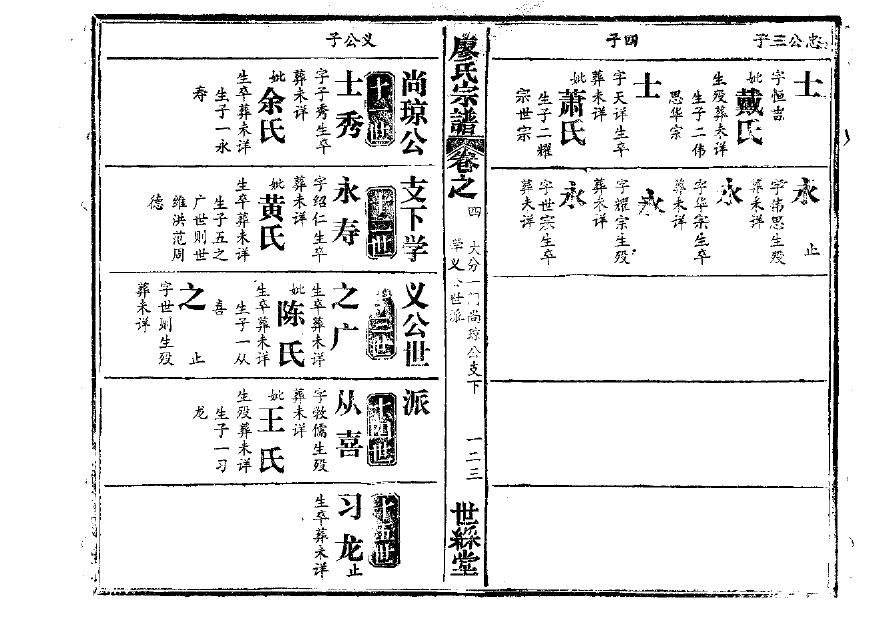 忠公三子
士
止
字恒吉
妣戴氏
生殁葬未详
生子二伟
思华宗
四子
士
字天详生卒
葬未详
妣萧氏
生子二耀
宗世宗
永
止
字伟思生殁
葬未详
永
字华宗生卒
葬未详
永
字耀宗生殁
葬未详
永
字世宗生卒
葬未详
廖氏宗譜
卷之四
大分一门尚琼公支下
学义公世派
一二三
世綵堂
尚琼公支下学义公世派
义公子
十一世
士秀
字子秀生卒
葬未详
妣余氏
生卒葬未详
生子一永
寿
十二世
永寿
字绍仁生卒
葬未详
妣黄氏
生卒葬未详
生子五之
广世则世
维洪范周
德
十三世
之广
生卒葬未详
妣陈氏
生卒葬未详
生子一从
喜
之
止
字世则生殁
葬未详
十四世
从喜
字敦儒生殁
葬未详
妣王氏
生殁葬未详
生子一习
龙
十五世
习龙止
生卒葬未详